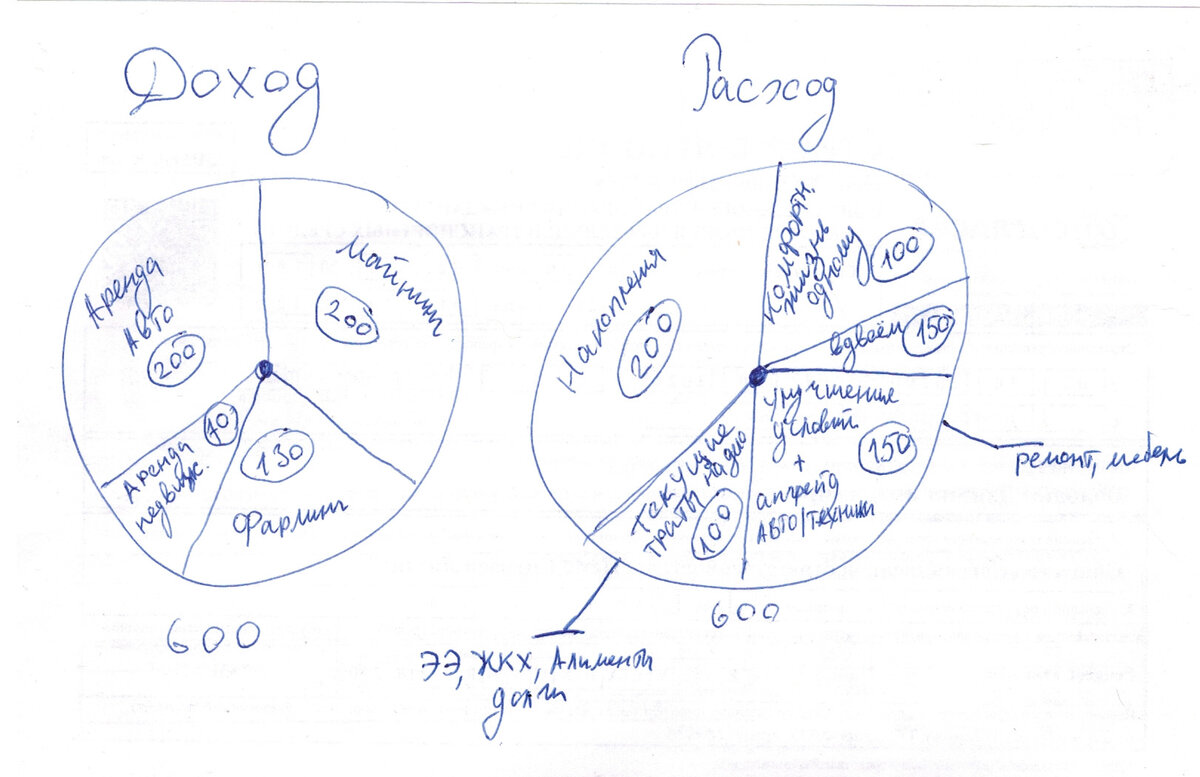 Доход
Майнинг
200
Аренда
Авто
200
Аренда
недвиж.
70
130
Фарминг
600
Расход
Накопления
200
Комфортн.
жизнь
одному
100
вдвоём
150
улучшение
условий
+
апгрейд
Авто/техники
150
ремонт, мебель
Текущие
траты надо
100
ЭЭ, ЖКХ, Алименты
долги
600